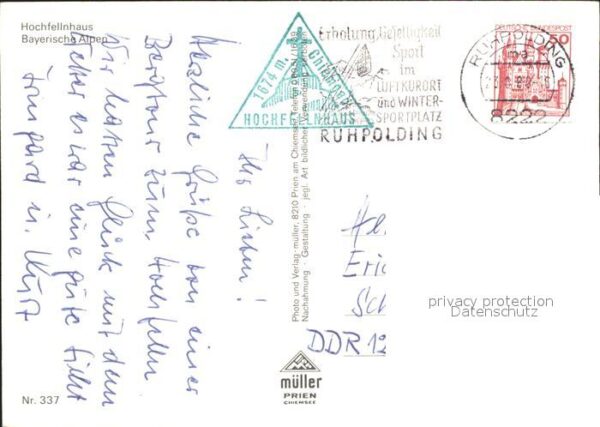 Hochfellnhaus
Bayerische Alpen
Ihr Lieben!
Herzliche Grüße von einer
Bergtour zum Hochfelln
Wir hatten Glück mit dem
Wetter es war eine gute Sicht
Irmgard u. Kurt
Nr. 337
1674 m.
HOCHFELLNHAUS
Erholung, Geselligkeit
Sport
im
LUFTKURORT
und WINTER-
SPORTPLATZ
RUHPOLDING
DEUTSCHE BUNDESPOST
50
RUHPOLDING
8222
Photo und Verlag: müller, 8210 Prien am Chiemsee
Nachahmung - Gestaltung - jegl. Art bildlicher Verwendung verboten
müller
PRIEN
CHIEMSEE
Eric
DDR 12
privacy protection
Datenschutz